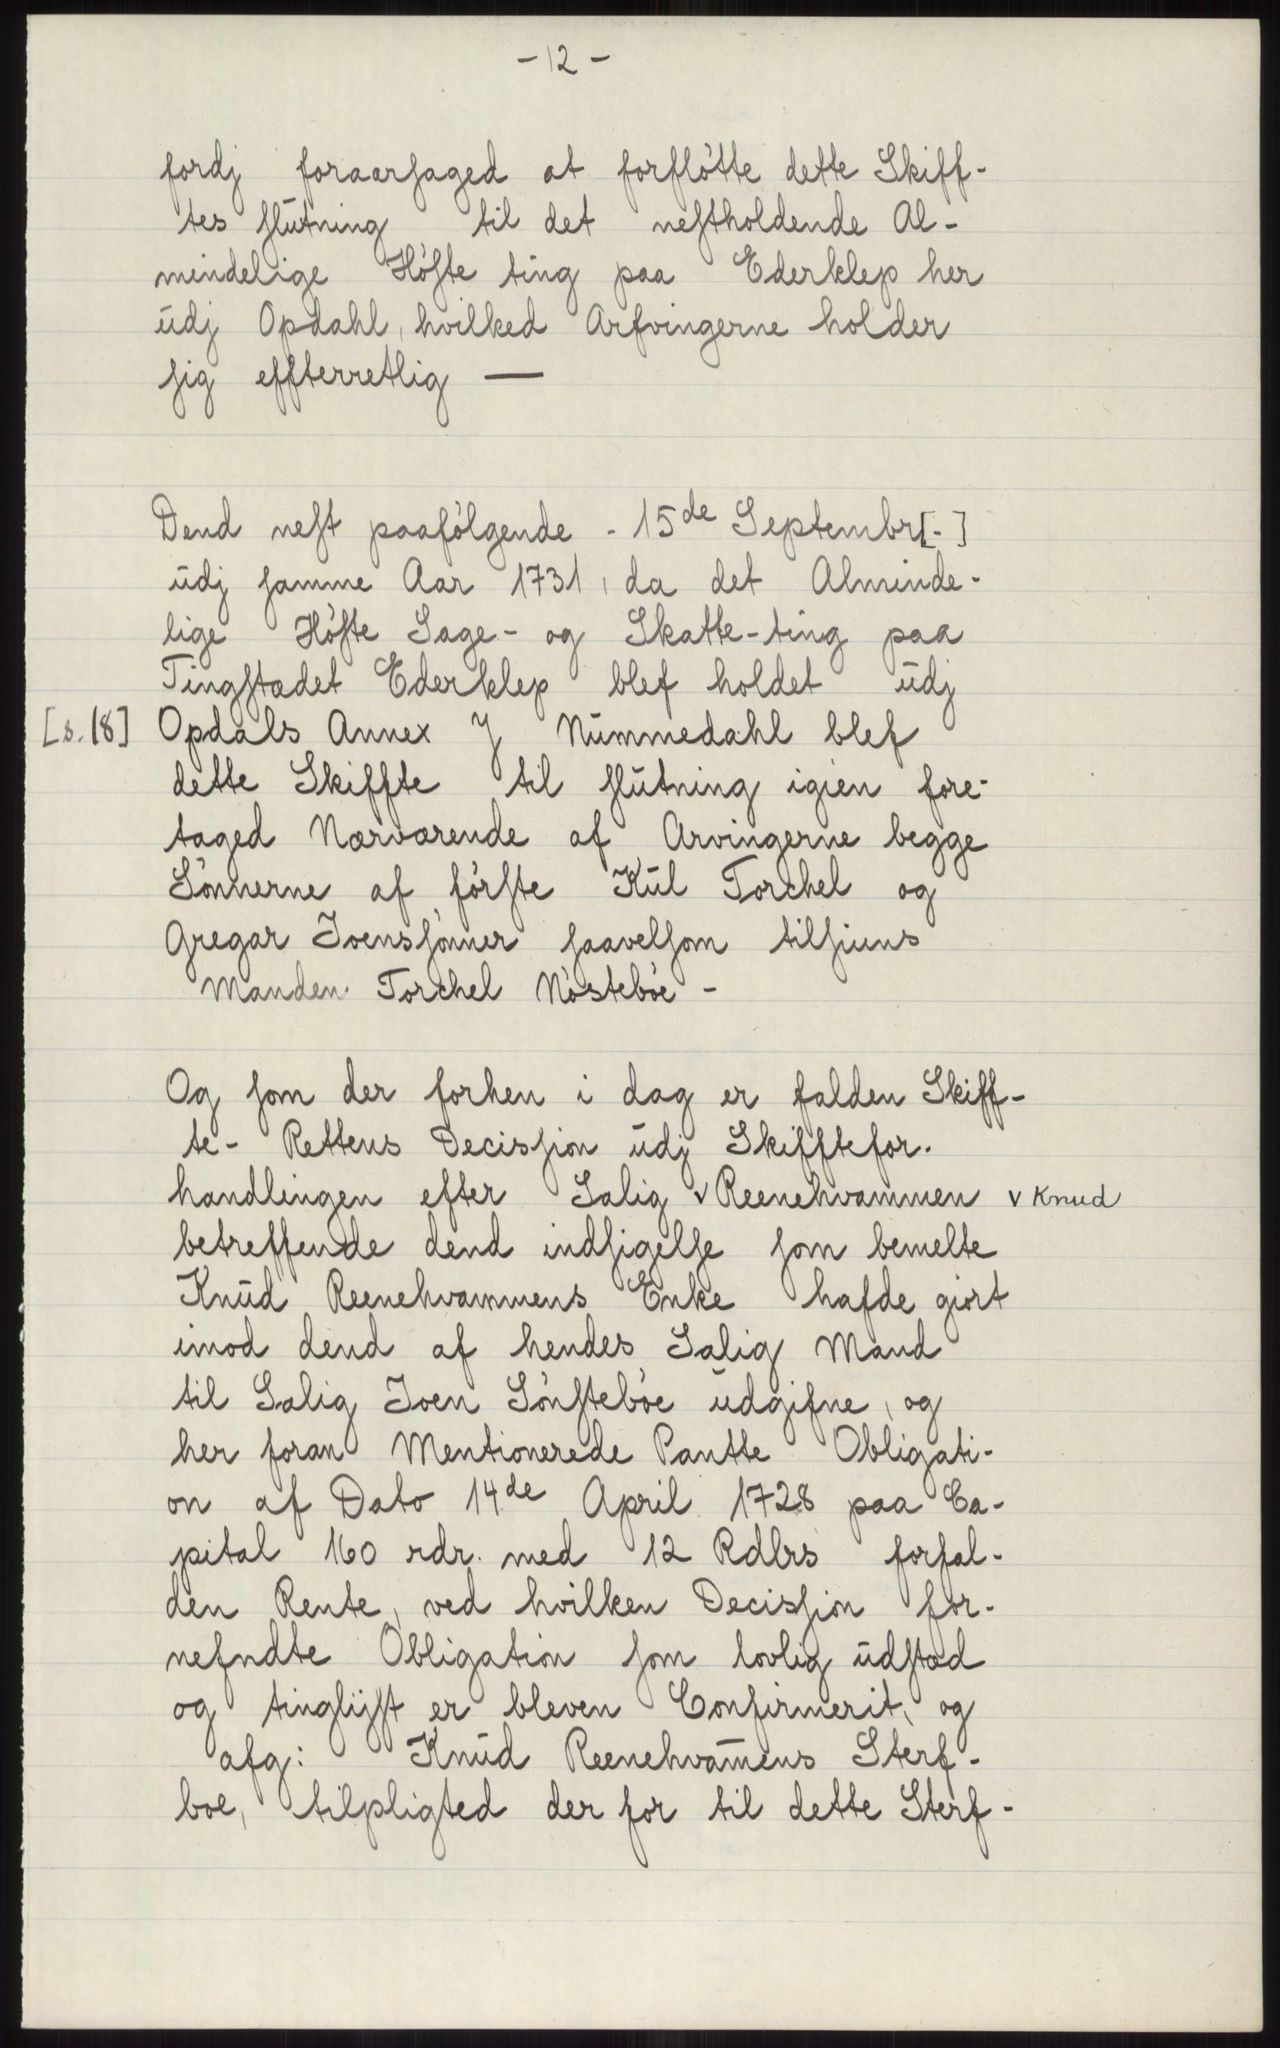 - 12 -
fordj foraarsaged at forflötte dette Skiff-
tes slutning til det nestholdende Al-
mindelige Höste ting paa Ederklep her
udj Opdahl, hvilked Arfvingerne holder
sig effterretlig —
Dend nest paafölgende - 15de Septembr[-]
udj samme Aar 1731, da det Alminde-
lige Höste Sage- og Skatte-ting paa
Tingstædet Ederklep blef holdet udj
[s. 18] Opdals Annex J Nummedahl blef
dette Skiffte til slutning igien fore-
taged Nærværende af Arvingerne begge
Sönnerne af förste Kul Torchel og
Gregar Joenssönner saavelsom tilsiuns
Manden Torchel Nösteböe -
Og som der forhen i dag er falden Skiff-
te- Rettens Decission udj Skifftefor-
handlingen efter Salig v Reenehvammen v Knud
betreffende dend indsigelse som bemelte
Knud Reenehvammens Enke hafde giort
imod dend af hendes Salig Mand
til Salig Joen Sönsteböe udgifne, og
her foran Mentionerede Pantte Obligati-
on af Dato 14de April 1728 paa Ca-
pital 160 rdr. med 12 Rdlrs forfal-
den Rente, ved hvilken Decission for-
nefndte Obligation som lovlig udstæd
og tinglijst er bleven Confirmerit, og
afg: Knud Reenehvam̅ens Sterf-
boe, tilpligted der for til dette Sterf-